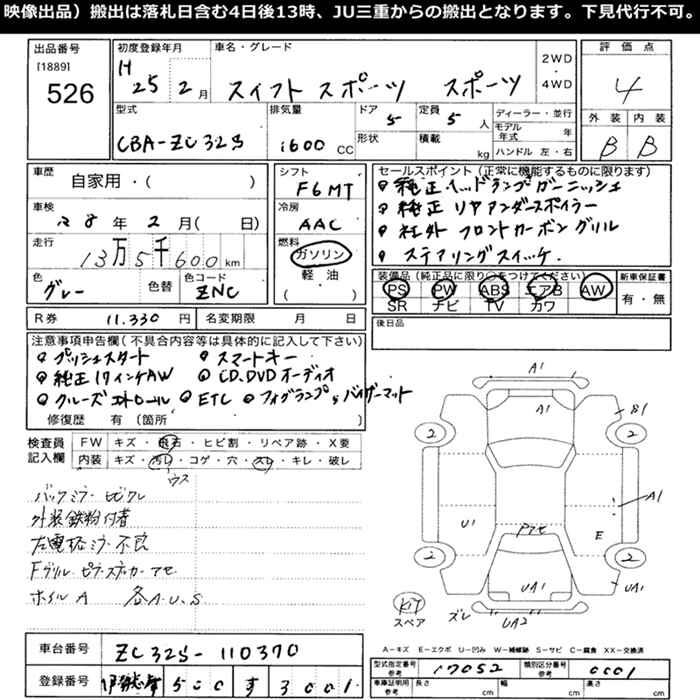 映像出品）搬出は落札日含む4日後13時、JU三重からの搬出となります。下見代行不可。
出品番号 [1889] 526
初度登録年月 H25 2月
車名・グレード スイフト スポーツ スポーツ
2WD・4WD
評価点 4
外装 B 内装 B
型式 CBA-ZC32S
排気量 1600 CC
ドア 5 形状
定員 5人 積載 kg
ディーラー・並行
モデル年式 年
ハンドル 左・右
車歴 自家用・( )
車検 28年2月( 日)
走行 13万5千600km
色 グレー 色替 色コード ZNC
シフト F6MT
冷房 AAC
燃料 ガソリン 軽油 ( )
セールスポイント（正常に機能するものに限ります）
純正ヘッドランプガーニッシュ
純正リヤアンダースポイラー
社外フロントカーボングリル
ステアリングスイッチ.
装備品（純正品に限り○をつけてください）
PS PW ABS エアB AW
SR ナビ TV カワ
新車保証書 有・無
R券 11.330円 名変期限 月 日
後日品
注意事項申告欄（不具合内容等は具体的に記入して下さい）
プッシュスタート スマートキー
純正17インチAW CD,DVDオーディオ
クルーズコントロール ETC フォグランプ バイザーマット
修復歴 有（箇所 ）
検査員記入欄
FW キズ・飛石・ヒビ割・リペア跡・X要
内装 キズ・汚れ・コゲ・穴・スレ・キレ・破レ
ウス
バックミラービビクレ
外装鉄粉付着
左電格ミラー不良
Fグリル・ピラーステッカーアセ
ホイルA 各A.U.S
A1
A1
B1
2 2
A1
U1 アセ E
2 2
UA1 UA1
KIT スペア
ズレ UA2
車台番号 ZC32S-110370
登録番号 500 す 3001
A-キズ E-エクボ U-凹み W-補修跡 S-サビ C-腐食 XX-交換済
型式指定番号 参考 17052 類別区分番号 参考 0001
車庫証明用 参考 長さ cm 幅 cm 高さ cm